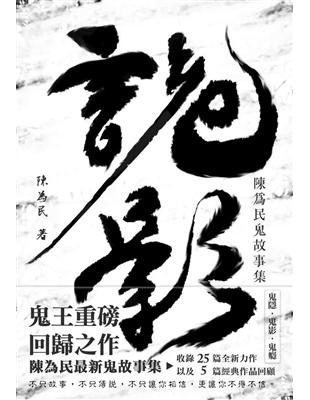 詭影
陳為民鬼故事集
陳為民 著
鬼隱・鬼影・鬼癮
鬼王重磅
回歸之作
陳為民最新鬼故事集▶
收錄25篇全新力作
以及 5 篇經典作品回顧
不只故事,不只傳說,不只讓你相信,更讓你不得不信。